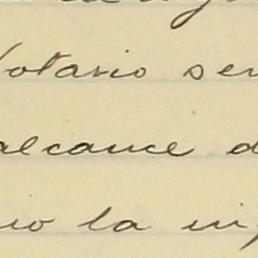 Notario ser
alcance d
no la in